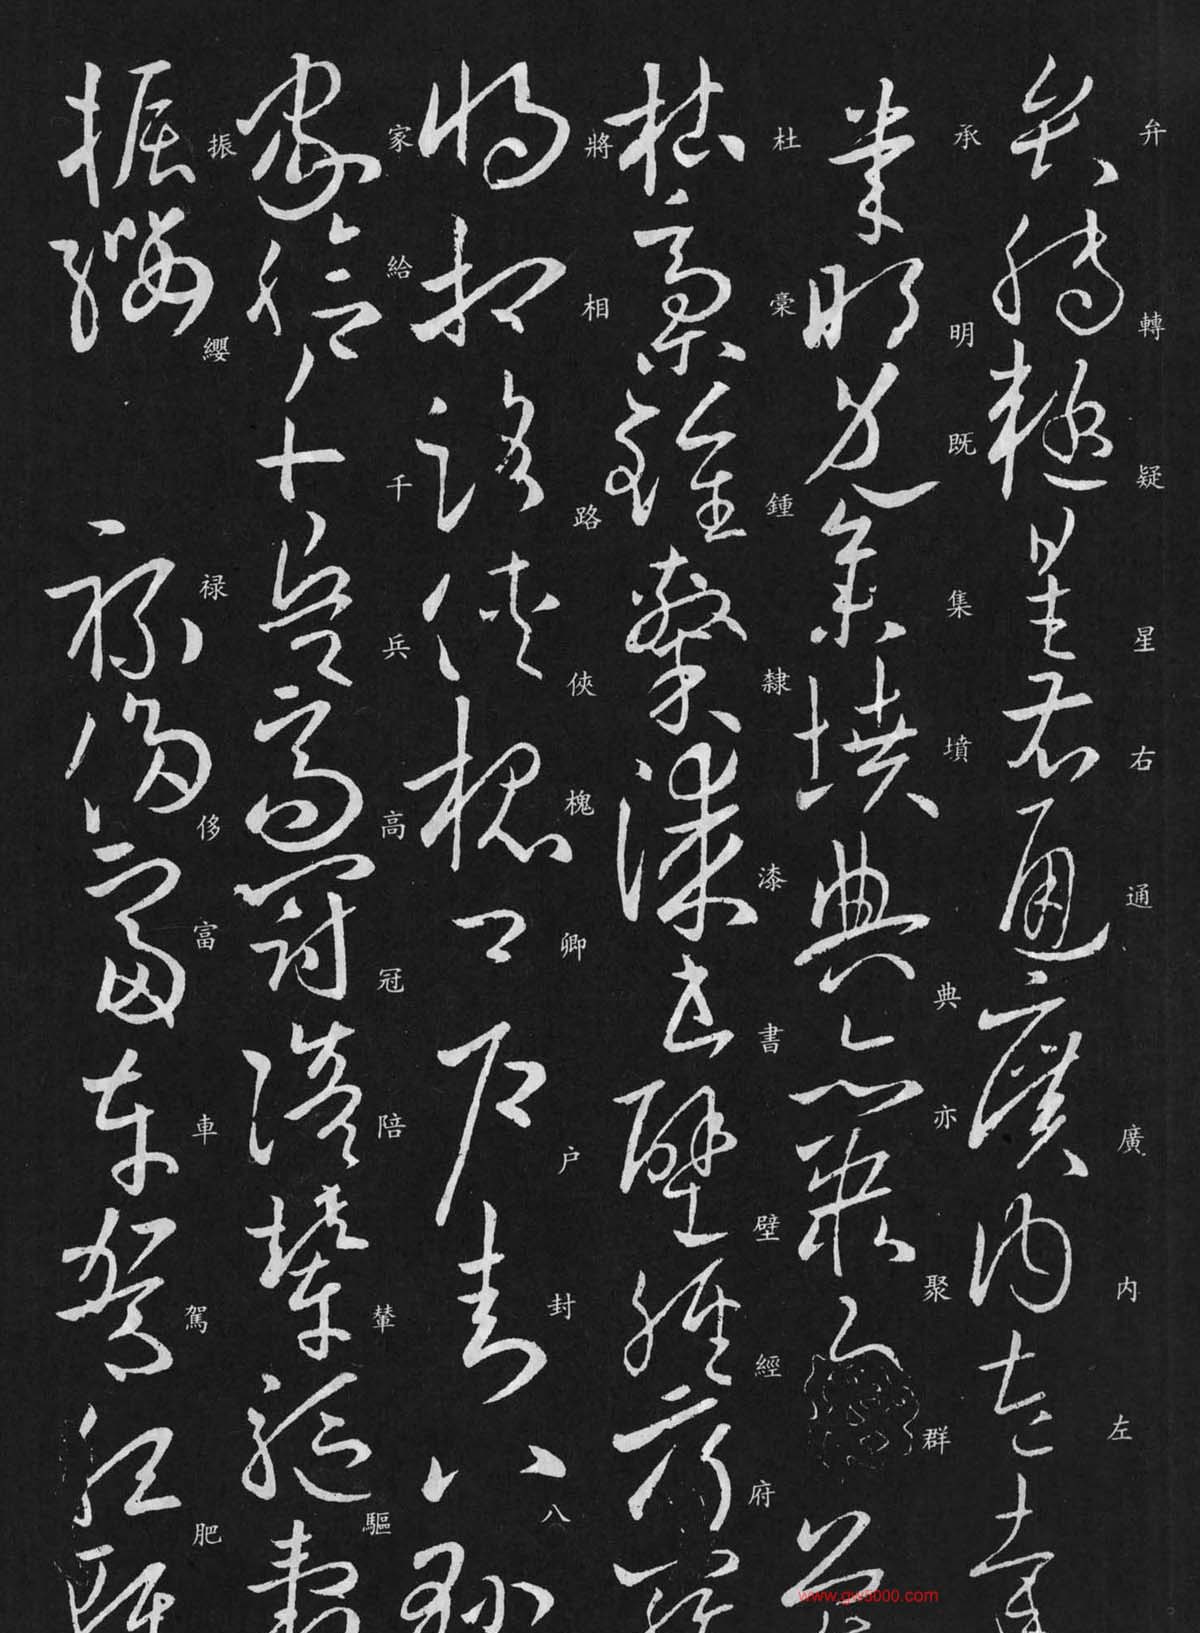 弁轉疑星右通廣内左
承明既集墳典亦聚群
杜稾鍾隸漆書壁經府
將相路俠槐卿户封八
家給千兵高冠陪輦驅
振纓 禄侈富車駕肥
www.gw5000.com